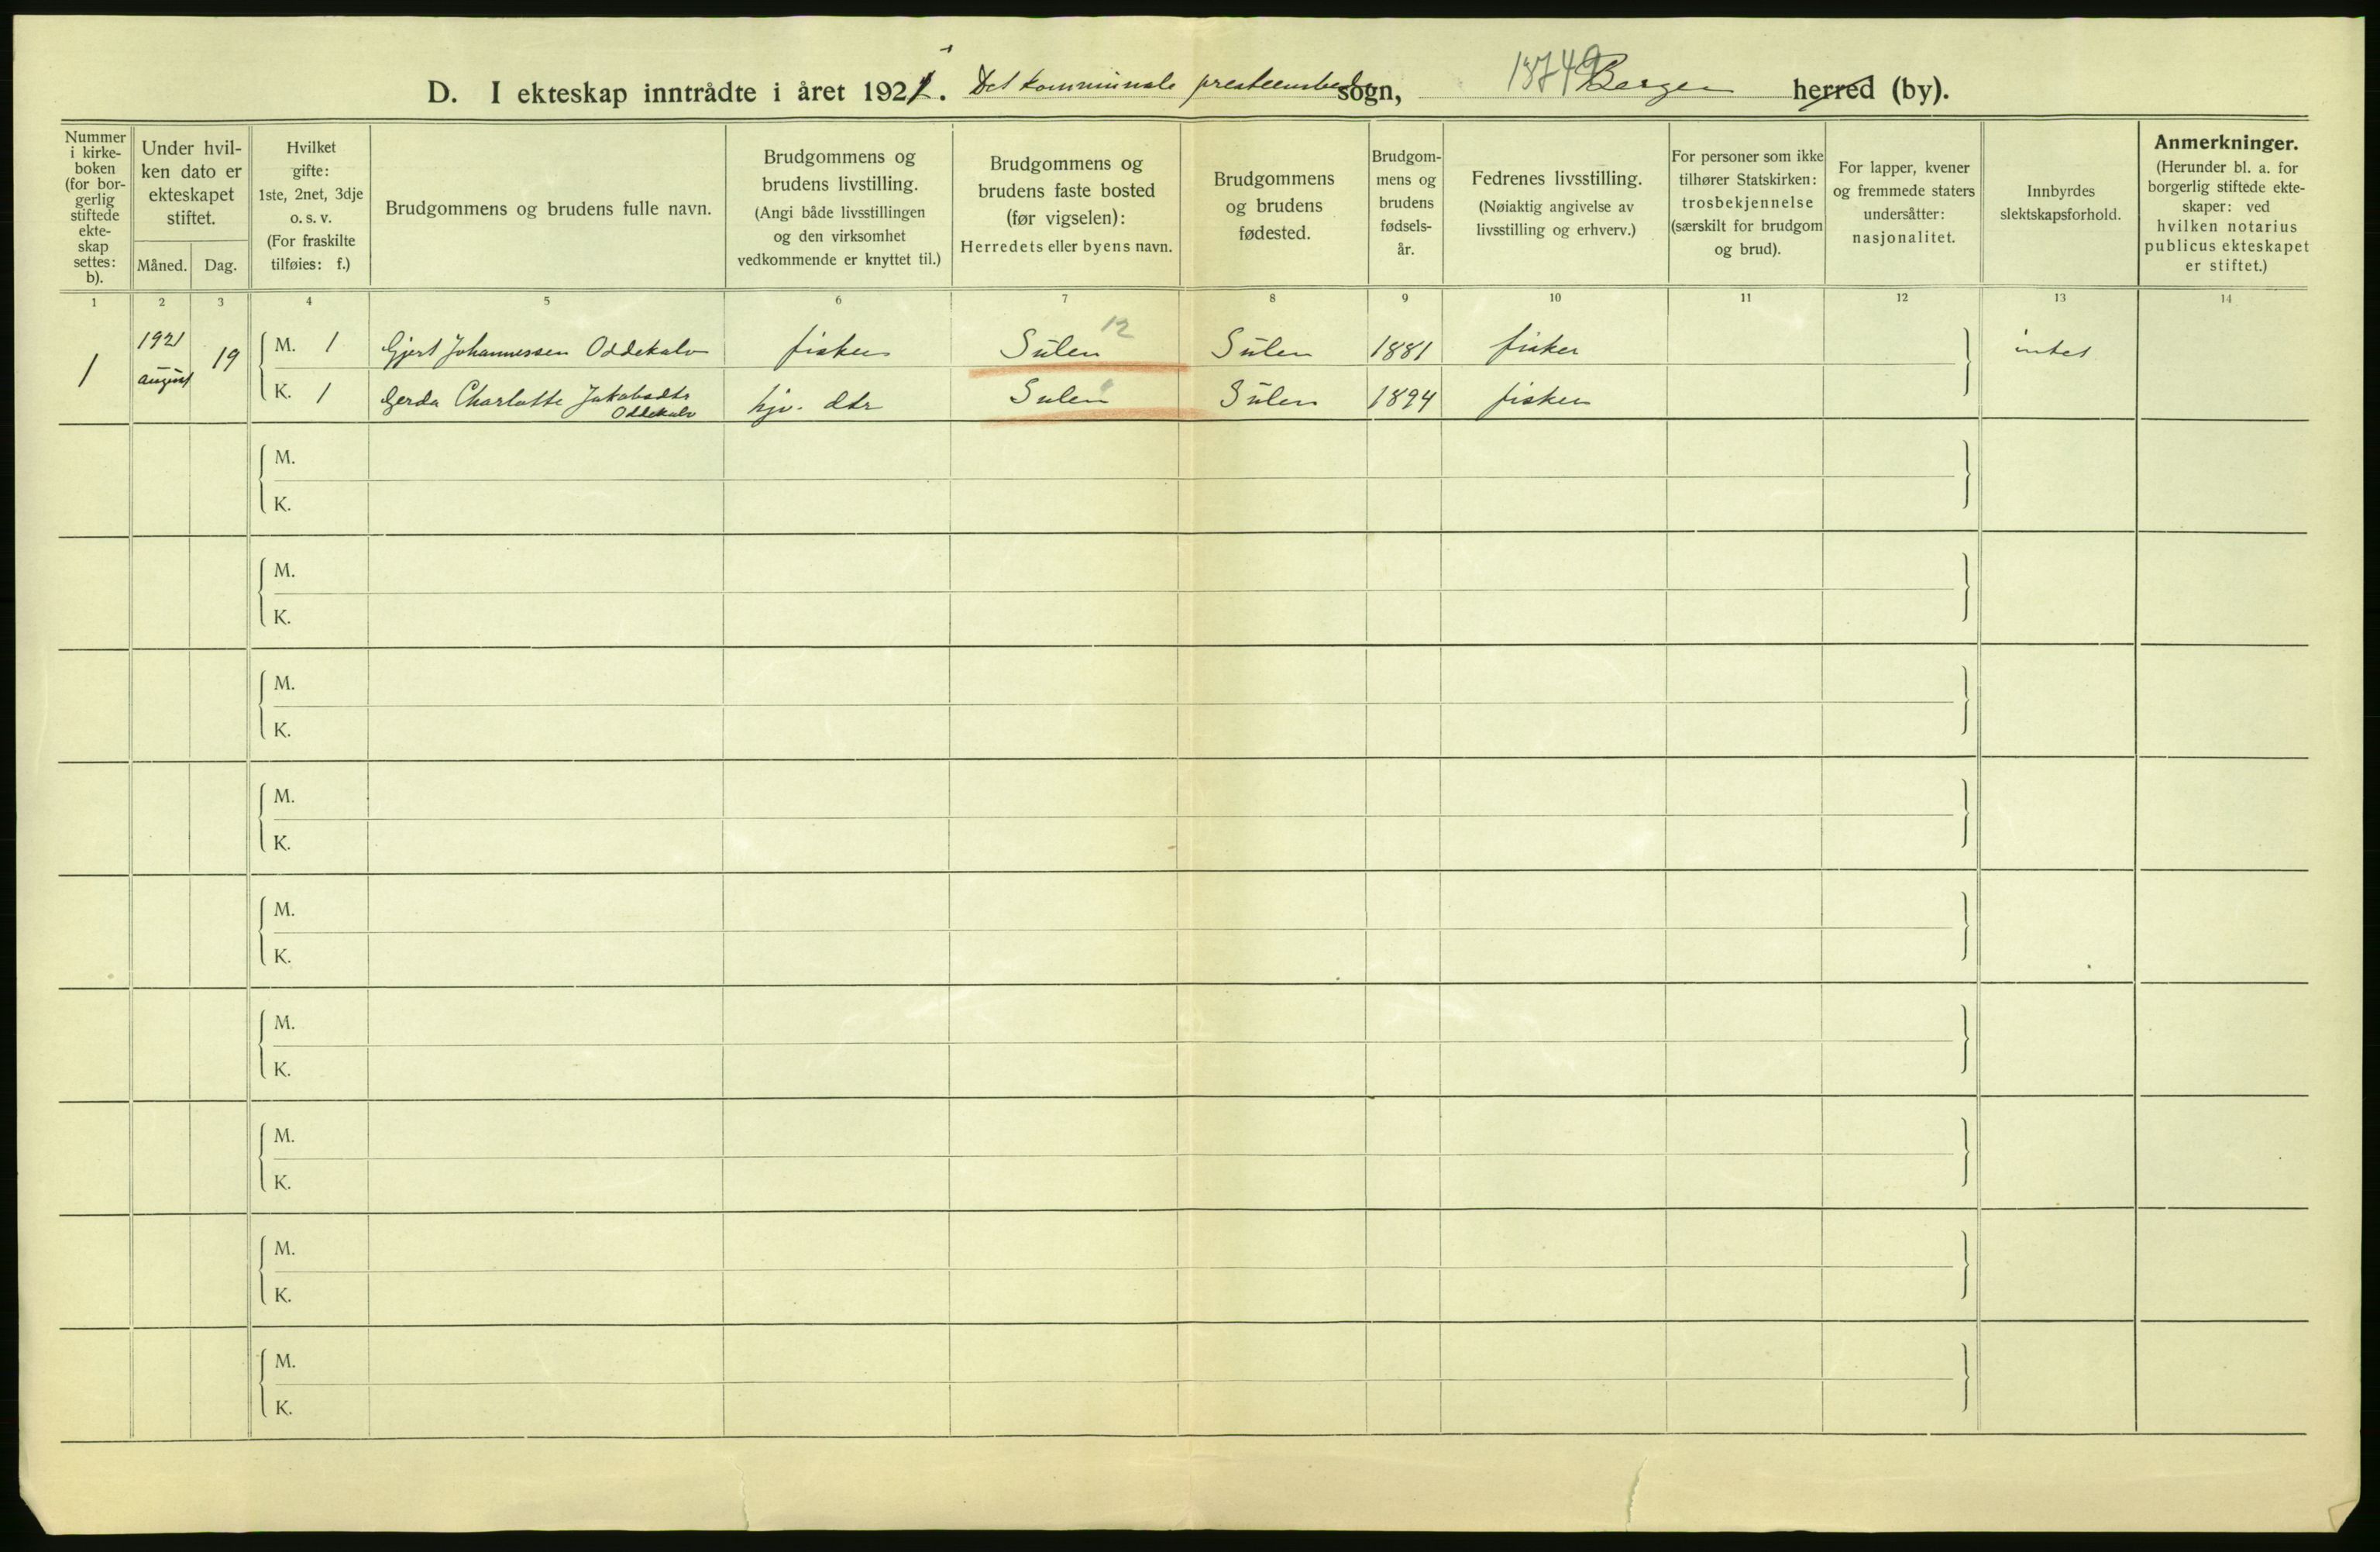 D. I ekteskap inntrådte i året 1921. Det kommunale presteembede sogn, 18749 Bergen herred (by).
Nummer i kirke-boken (for bor-gerlig stiftede ekte-skap settes: b).
Under hvil-ken dato er ekteskapet stiftet.
Måned. Dag.
Hvilket gifte: 1ste, 2net, 3dje o. s. v. (For fraskilte tilføies: f.)
Brudgommens og brudens fulle navn.
Brudgommens og brudens livstilling. (Angi både livsstillingen og den virksomhet vedkommende er knyttet til.)
Brudgommens og brudens faste bosted (før vigselen): Herredets eller byens navn.
Brudgommens og brudens fødested.
Brudgom-mens og brudens fødsels-år.
Fedrenes livsstilling. (Nøiaktig angivelse av livsstilling og erhverv.)
For personer som ikke tilhører Statskirken: trosbekjennelse (særskilt for brudgom og brud).
For lapper, kvener og fremmede staters undersåtter: nasjonalitet.
Innbyrdes slektskapsforhold.
Anmerkninger. (Herunder bl. a. for borgerlig stiftede ekte-skaper: ved hvilken notarius publicus ekteskapet er stiftet.)
1 2 3 4 5 6 7 8 9 10 11 12 13 14
1 1921 august 19 M. 1 Gjert Johannessen Oddekalv fisker Sulen 12 Sulen 1881 fisker intet
K. 1 Gerda Charlotte Jakobsdtr Oddekalv hjv. dtr Sulen Sulen 1894 fisker
M.
K.
M.
K.
M.
K.
M.
K.
M.
K.
M.
K.
M.
K.
M.
K.
M.
K.